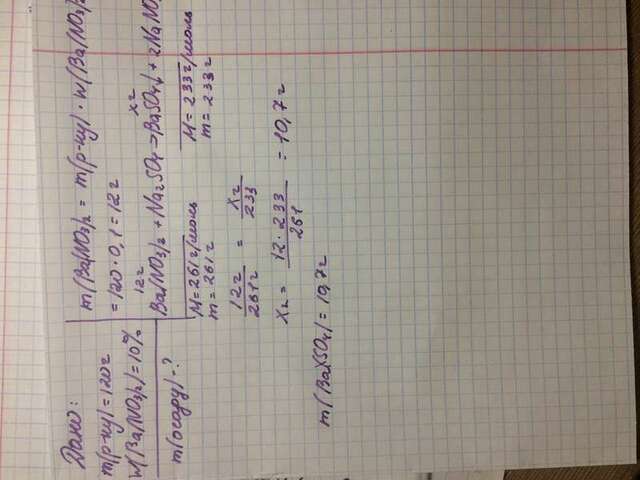 Дано:
m(р-ну) = 120г
W(Ba(NO3)2) = 10%
m(осаду) - ?
m(Ba(NO3)2 = m(р-ну) · W(Ba(NO3)2
= 120 · 0,1 = 12г
12г xг
Ba(NO3)2 + Na2SO4 → BaSO4↓ + 2NaNO
M = 261г/моль M = 233г/моль
m = 261г m = 233г
12г / 261г = Xг / 233
Xг = 12 · 233 / 261 = 10,7г
m(BaSO4) = 10,7г